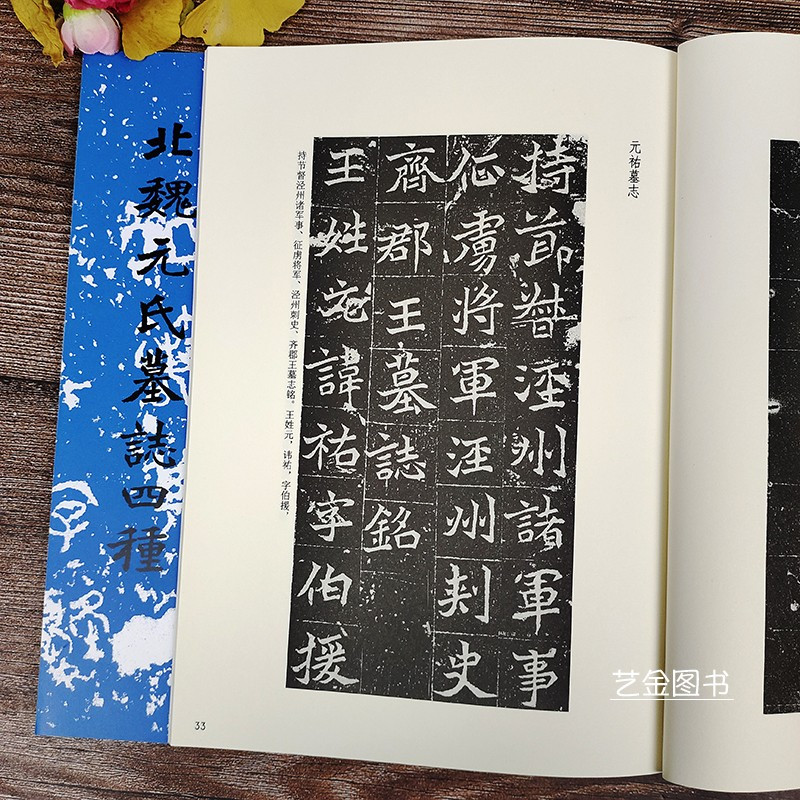 北魏元氏墓誌四種
元祐墓志
持節督涇州諸軍事
征虜將軍涇州刾史
齊郡王墓誌銘
王姓元諱祐字伯援
持节督泾州诸军事、征虏将军、泾州刺史、齐郡王墓志铭。王姓元，讳祐，字伯援，
33
艺金图书